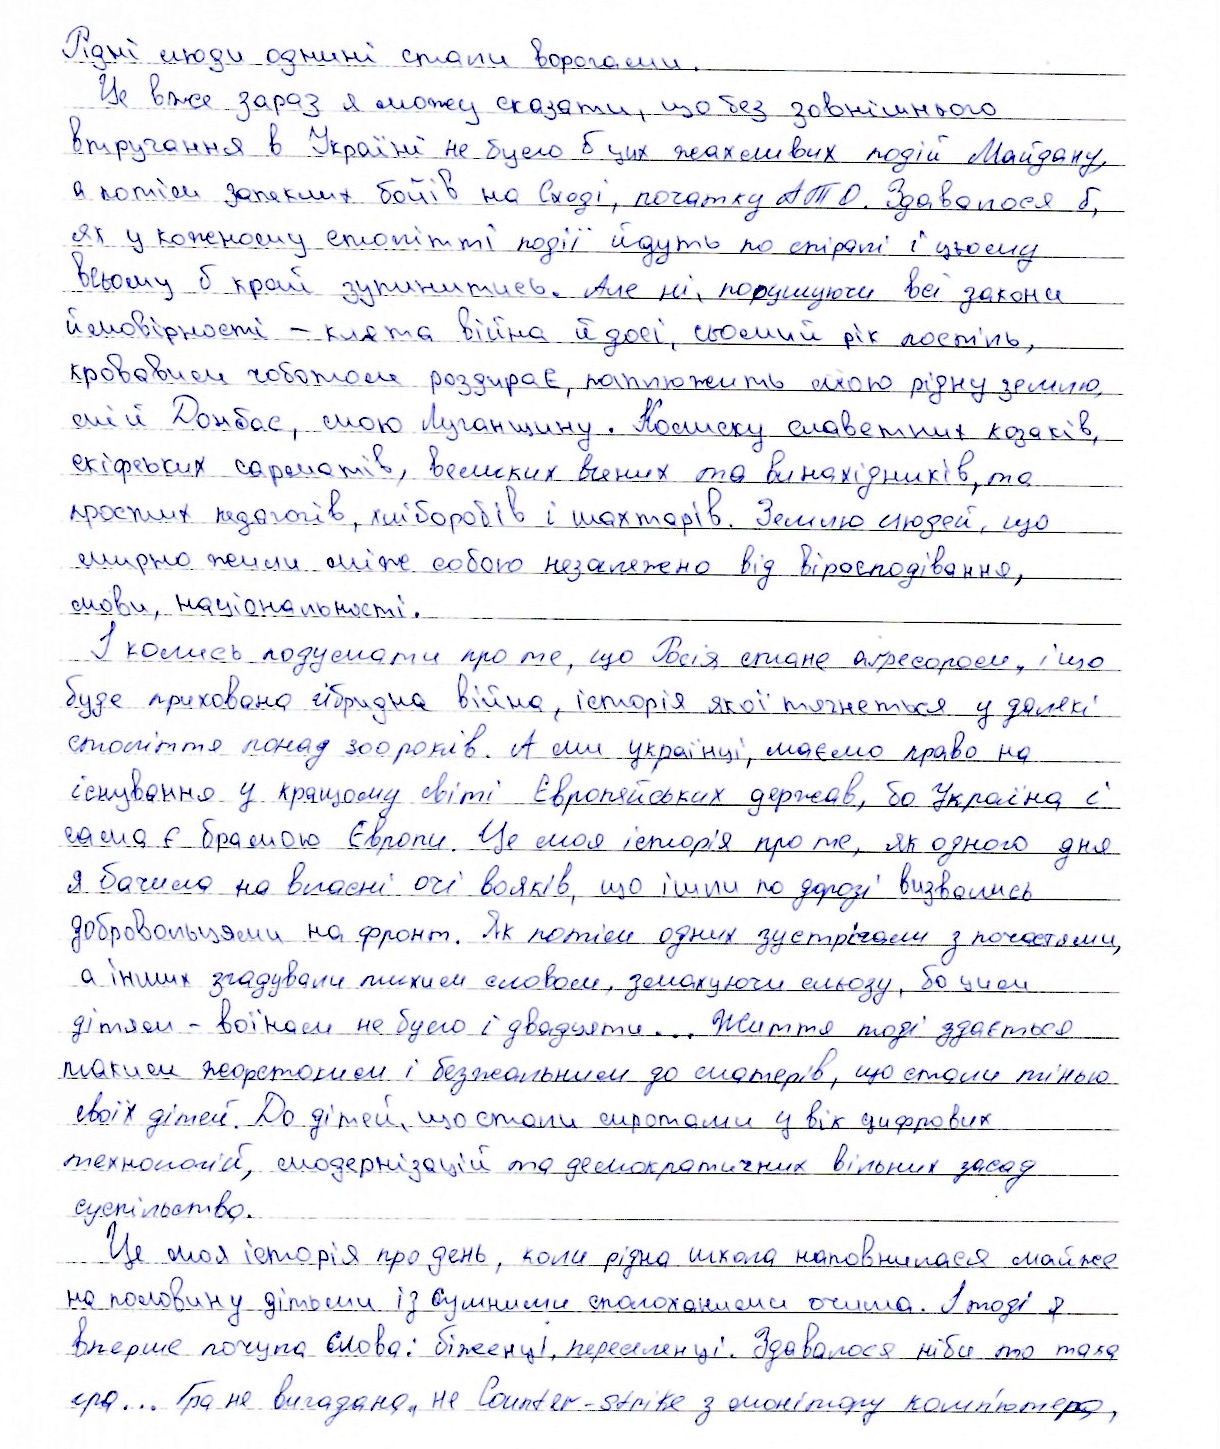 Рідні люди однині стали ворогами.
Це вже зараз я можу сказати, що без зовнішнього
втручання в Україні не було б цих жахливих подій Майдану,
а потім запеклих боїв на Сході, початку АТО. Здавалося б,
як у кожному столітті події йдуть по спіралі і цьому
всьому б край зупинитись. Але ні, порушуючи всі закони
ймовірності – клята війна й досі, сьомий рік поспіль,
кровавим чоботом роздирає, паплюжить мою рідну землю,
мій Донбас, мою Луганщину. Колиску славетних козаків,
скіфських сарматів, великих вчених та винахідників, та
простих педагогів, хліборобів і шахтарів. Землю людей, що
мирно жили між собою незалежно від віросподівання,
мови, національності.
І колись подумати про те, що Росія стане агресором, і що
буде прихована гібридна війна, історія якої тягнеться у далекі
століття понад 300 років. А ми українці, маємо право на
існування у кращому світі Європейських держав, бо Україна і
сама є брамою Європи. Це моя історія про те, як одного дня
я бачила на власні очі вояків, що ішли по дорозі визвались
добровольцями на фронт. Як потім одних зустрічали з почастями,
а інших згадували тихим словом, змахуючи сльозу, бо цим
дітям – воїнам не було і двадцяти... Життя тоді здається
таким жорстоким і безжальним до матерів, що стали тінью
своїх дітей. До дітей, що стали сиротами у вік цифрових
технологій, модернізацій та демократичних вільних засад
суспільства.
Це моя історія про день, коли рідна школа наповнилася майже
на половину дітьми із сумними сполоханими очима. І тоді я
вперше почула слова: біженці, переселенці. Здавалося ніби то така
гра... Гра не вигадана, не Counter-strike з монітору комп'ютера,